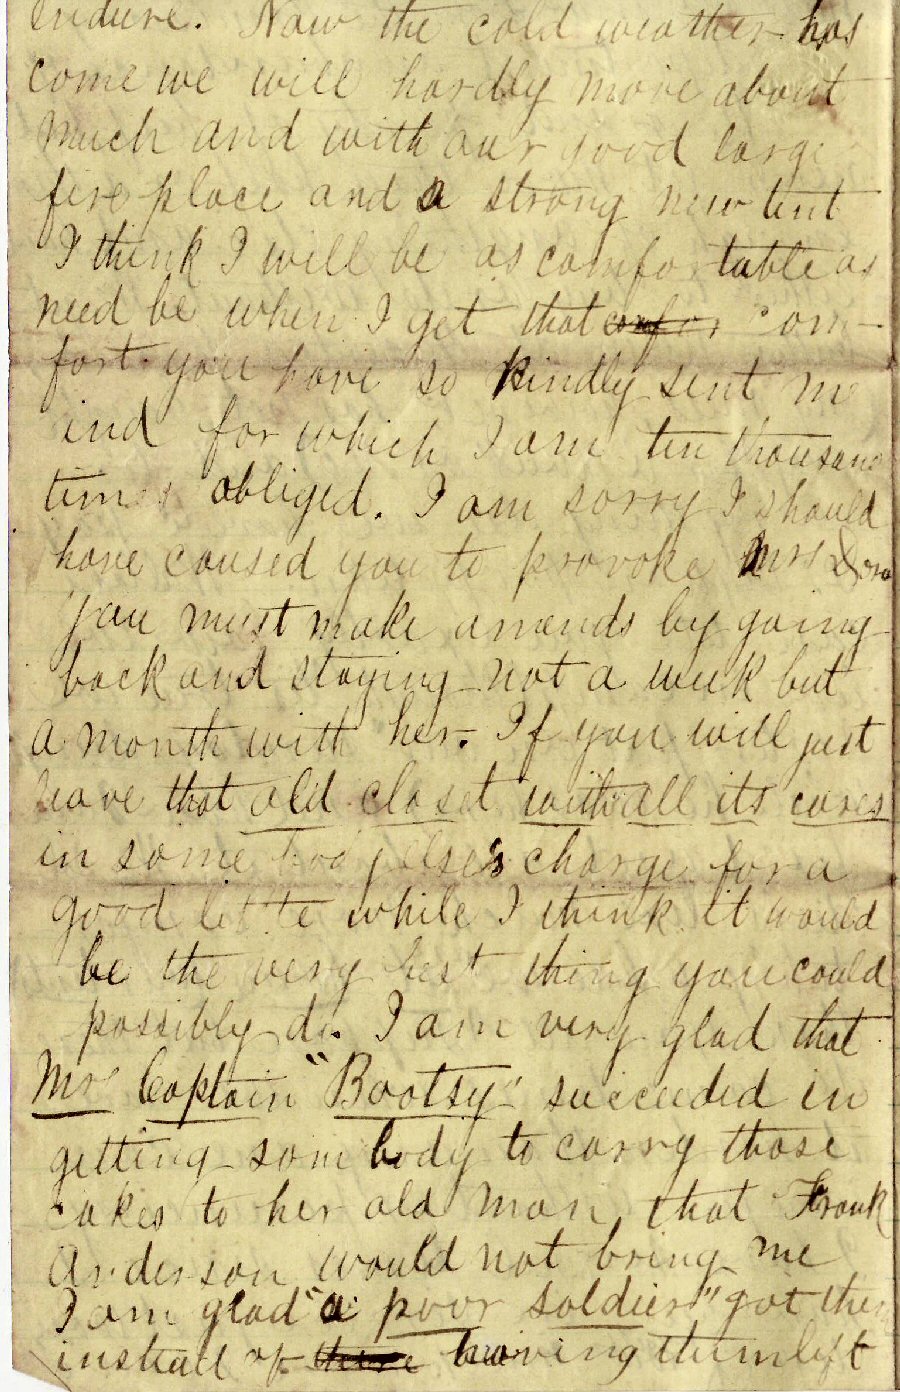 endure. Now the cold weather has
come we will hardly move about
much and with our good large
fire place and a strong new tent
I think I will be as comfortable as
need be when I get that comfor com-
fort you have so kindly sent me
and for which I am ten thousand
times obliged. I am sorry I should
have caused you to provoke Mrs
you must make amends by going
back and staying not a week but
a month with her. If you will just
leave that old closet with all its cares
in some body else's charge for a
good little while I think it would
be the very best thing you could
possibly do. I am very glad that
Mrs Captain "Bootsy" succeeded in
getting some body to carry those
cakes to her old man, that Frank
Anderson would not bring me
I am glad "a poor soldier" got them
instead of there having them left